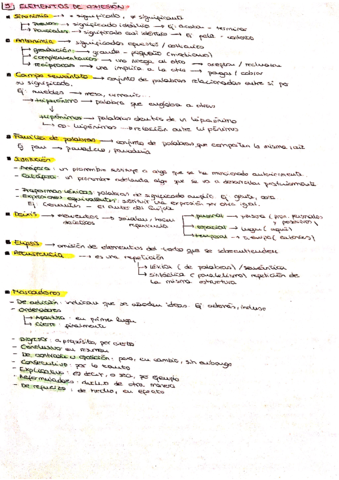 5) ELEMENTOS DE COHESIÓN
Sinonimia → ≠ significado, ≠ significante
→ significado idéntico → Ej: acabar - terminar
Parciales → significado casi idéntico → Ej: pelo - cabello
Antonimia → significados opuestos / contrarios
→ graduación → grande - pequeño (medio)
→ complementarios → uno niega al otro → aceptar / rechazar
→ recíprocos → uno implica a la otra → pagar / cobrar
Campo semántico → conjunto de palabras relacionadas entre sí por
su significado.
Ej: muebles → mesa, armario...
→ hiperónimo → palabra que engloba a otras
→ hipónimos → palabra dentro de un hiperónimo
→ co-hipónimos → relación entre hipónimos
Familia de palabras → conjunto de palabras que comparten la misma raíz
Ej: pan → panadero, panadería
Sustitución
- Anáfora: un pronombre sustituye a algo que se ha mencionado anteriormente
- Catáfora: un pronombre adelanta algo que se va a desarrollar posteriormente
- Expresiones equivalentes: sustituir una expresión por otra igual.
Ej: Cervantes - el autor del Quijote
Deixis → elementos → señalan: lugar
→ personal → persona (pron. personales, posesivos)
→ espacial → lugar (aquí)
→ temporal → tiempo (adverbios)
Elipsis → omisión de elementos del texto que se sobreentienden
Recurrencia → es una repetición
→ léxica (de palabras) / semántica
→ sintáctica (paralelismo) repetición de
la misma estructura
Marcadores
- De adición: indican que se añaden ideas. Ej: además, incluso
- Ordenadores
→ Apertura: en primer lugar
→ Cierre: finalmente
- Digresor: a propósito, por cierto
- Conclusivo: en resumen
- De contraste u oposición: pero, en cambio, sin embargo
- Consecutivo: por lo tanto
- Explicativo: es decir, o sea, por ejemplo
- Reformuladores: dicho de otra manera
- De refuerzo: de hecho, en efecto